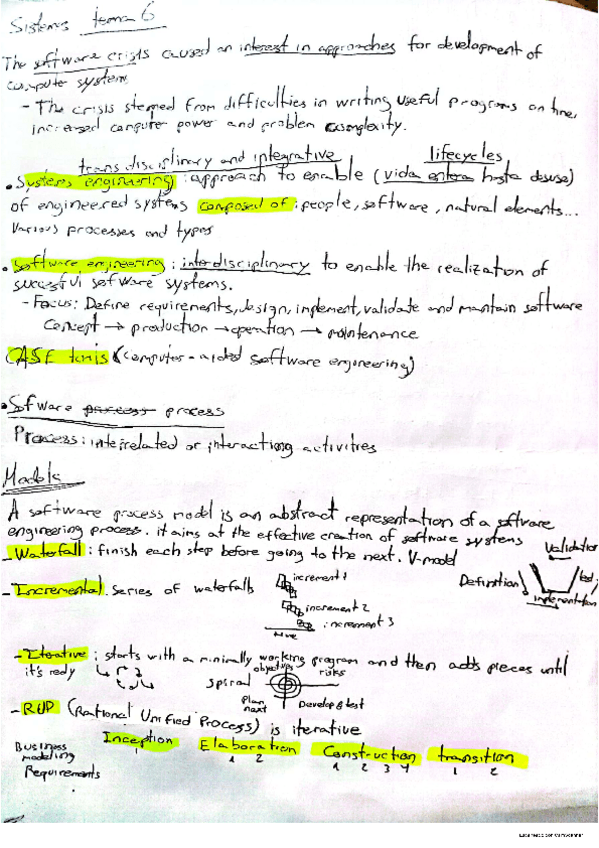 Sistemas tema 6
The software crisis caused an interest in approaches for development of
compute systems
- The crisis stemped from difficulties in writing useful programs on time,
increased computer power and problem complexity.
trans disciplinary and integrative lifecycles
• Systems engineering: approach to enable (vida entera hasta desuse)
of engineered systems composed of: people, software, natural elements...
Various processes and types
• Software engineering: interdisciplinary to enable the realization of
successful software systems.
- Focus: Define requirements, design, implement, validate and mantain software
Concept → production → operation → maintenance
CASE tools (computer-aided software engineering)
• Sofware process process
Process: inteirelated or interacting activities
Models
A software process model is an abstract representation of a software
engineering process. it aims at the effective creation of software systems
- Waterfall: finish each step before going to the next. V-model
Validation
Definition
implementation
- Incremental. series of waterfalls
increment 1
increment 2
increment 3
time
- Iterative: starts with a minimally working program and then adds pieces until
it's redy
spiral
objectives
risks
Plan next
Develop & test
- RUP (Rational Unified Process) is iterative
Inception Elaboration Construction transition
1 1 2 1 2 3 4 1 2
Business
modeling
Requirements